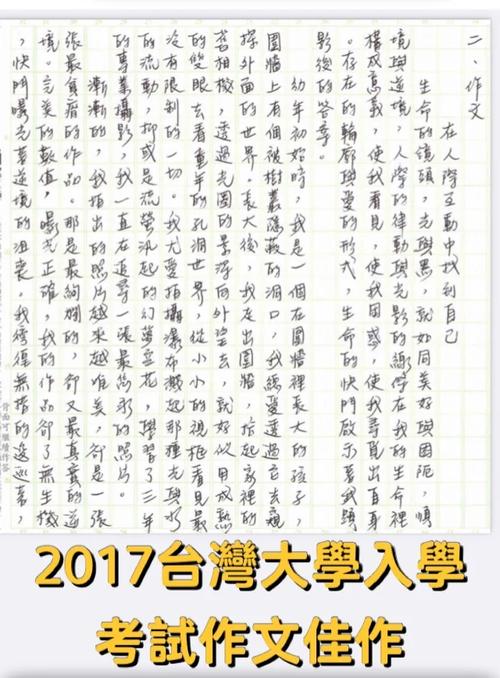 二、作文
在人際互動中找到自己
生命的鏡頭,光與黑,就如同美好與困阨,順
境與逆境,人際的律動與光影的停在我的生命裡
構成意義,使我看見,使我困惑,使我尋覓出自身
。存在的輪廓與愛的形式,生命的快門啟示著我
影後的答案。
幼年初始時,我是一個在圍牆裡長大的孩子,
圍牆上有個被樹叢隱蔽的洞口,我總愛透過它去窺
探外面的世界。長大後,我走出圍牆,拾起家裡的
舊相機,透過光圈的景深向外望去,就好似用成熟
的雙眼去看童年的孔洞世界,從小小的視框看見最
沒有限制的一切。我尤愛拍攝瀑布濺起那種光與水
的流動,抑或是流螢汎起的幻夢空花,學習了三年
的專業攝影,我一直在追尋一張最雋永的照片。
漸漸的,我拍出的照片越來越唯美,卻是一張
張最貧瘠的作品。那是最絢爛的,卻又最真實的逆
境。完美的數值,曝光正確,我的作品卻了無生機
,快門曝光著逆境的沮喪,我徬徨無措的逡巡著,
背面可繼續作答
2017台灣大學入學
考試作文佳作